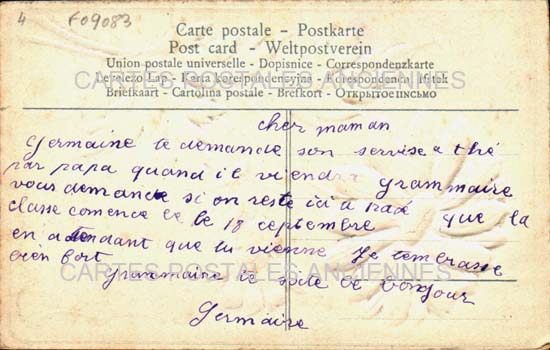 4 F09083
Carte postale - Postkarte
Post card - Weltpostverein
Union postale universelle - Dopisnice - Correspondenzkarte
Levelező Lap - Karta korespondencyjna - Korespondenční lístek
Briefkaart - Cartolina postale - Brefkort - Открытое письмо
CARTES POSTALES ANCIENNES
cher maman
Germaine te demande son servise a thé
par papa quand il viendra grammaire
vous demande si on reste ici a que la
classe comence le 18 septembre
en atendant que tu vienne Je tembrasse
bien fort
CARTES POSTALES ANCIENNES
grammaire te bonjour
Germaire